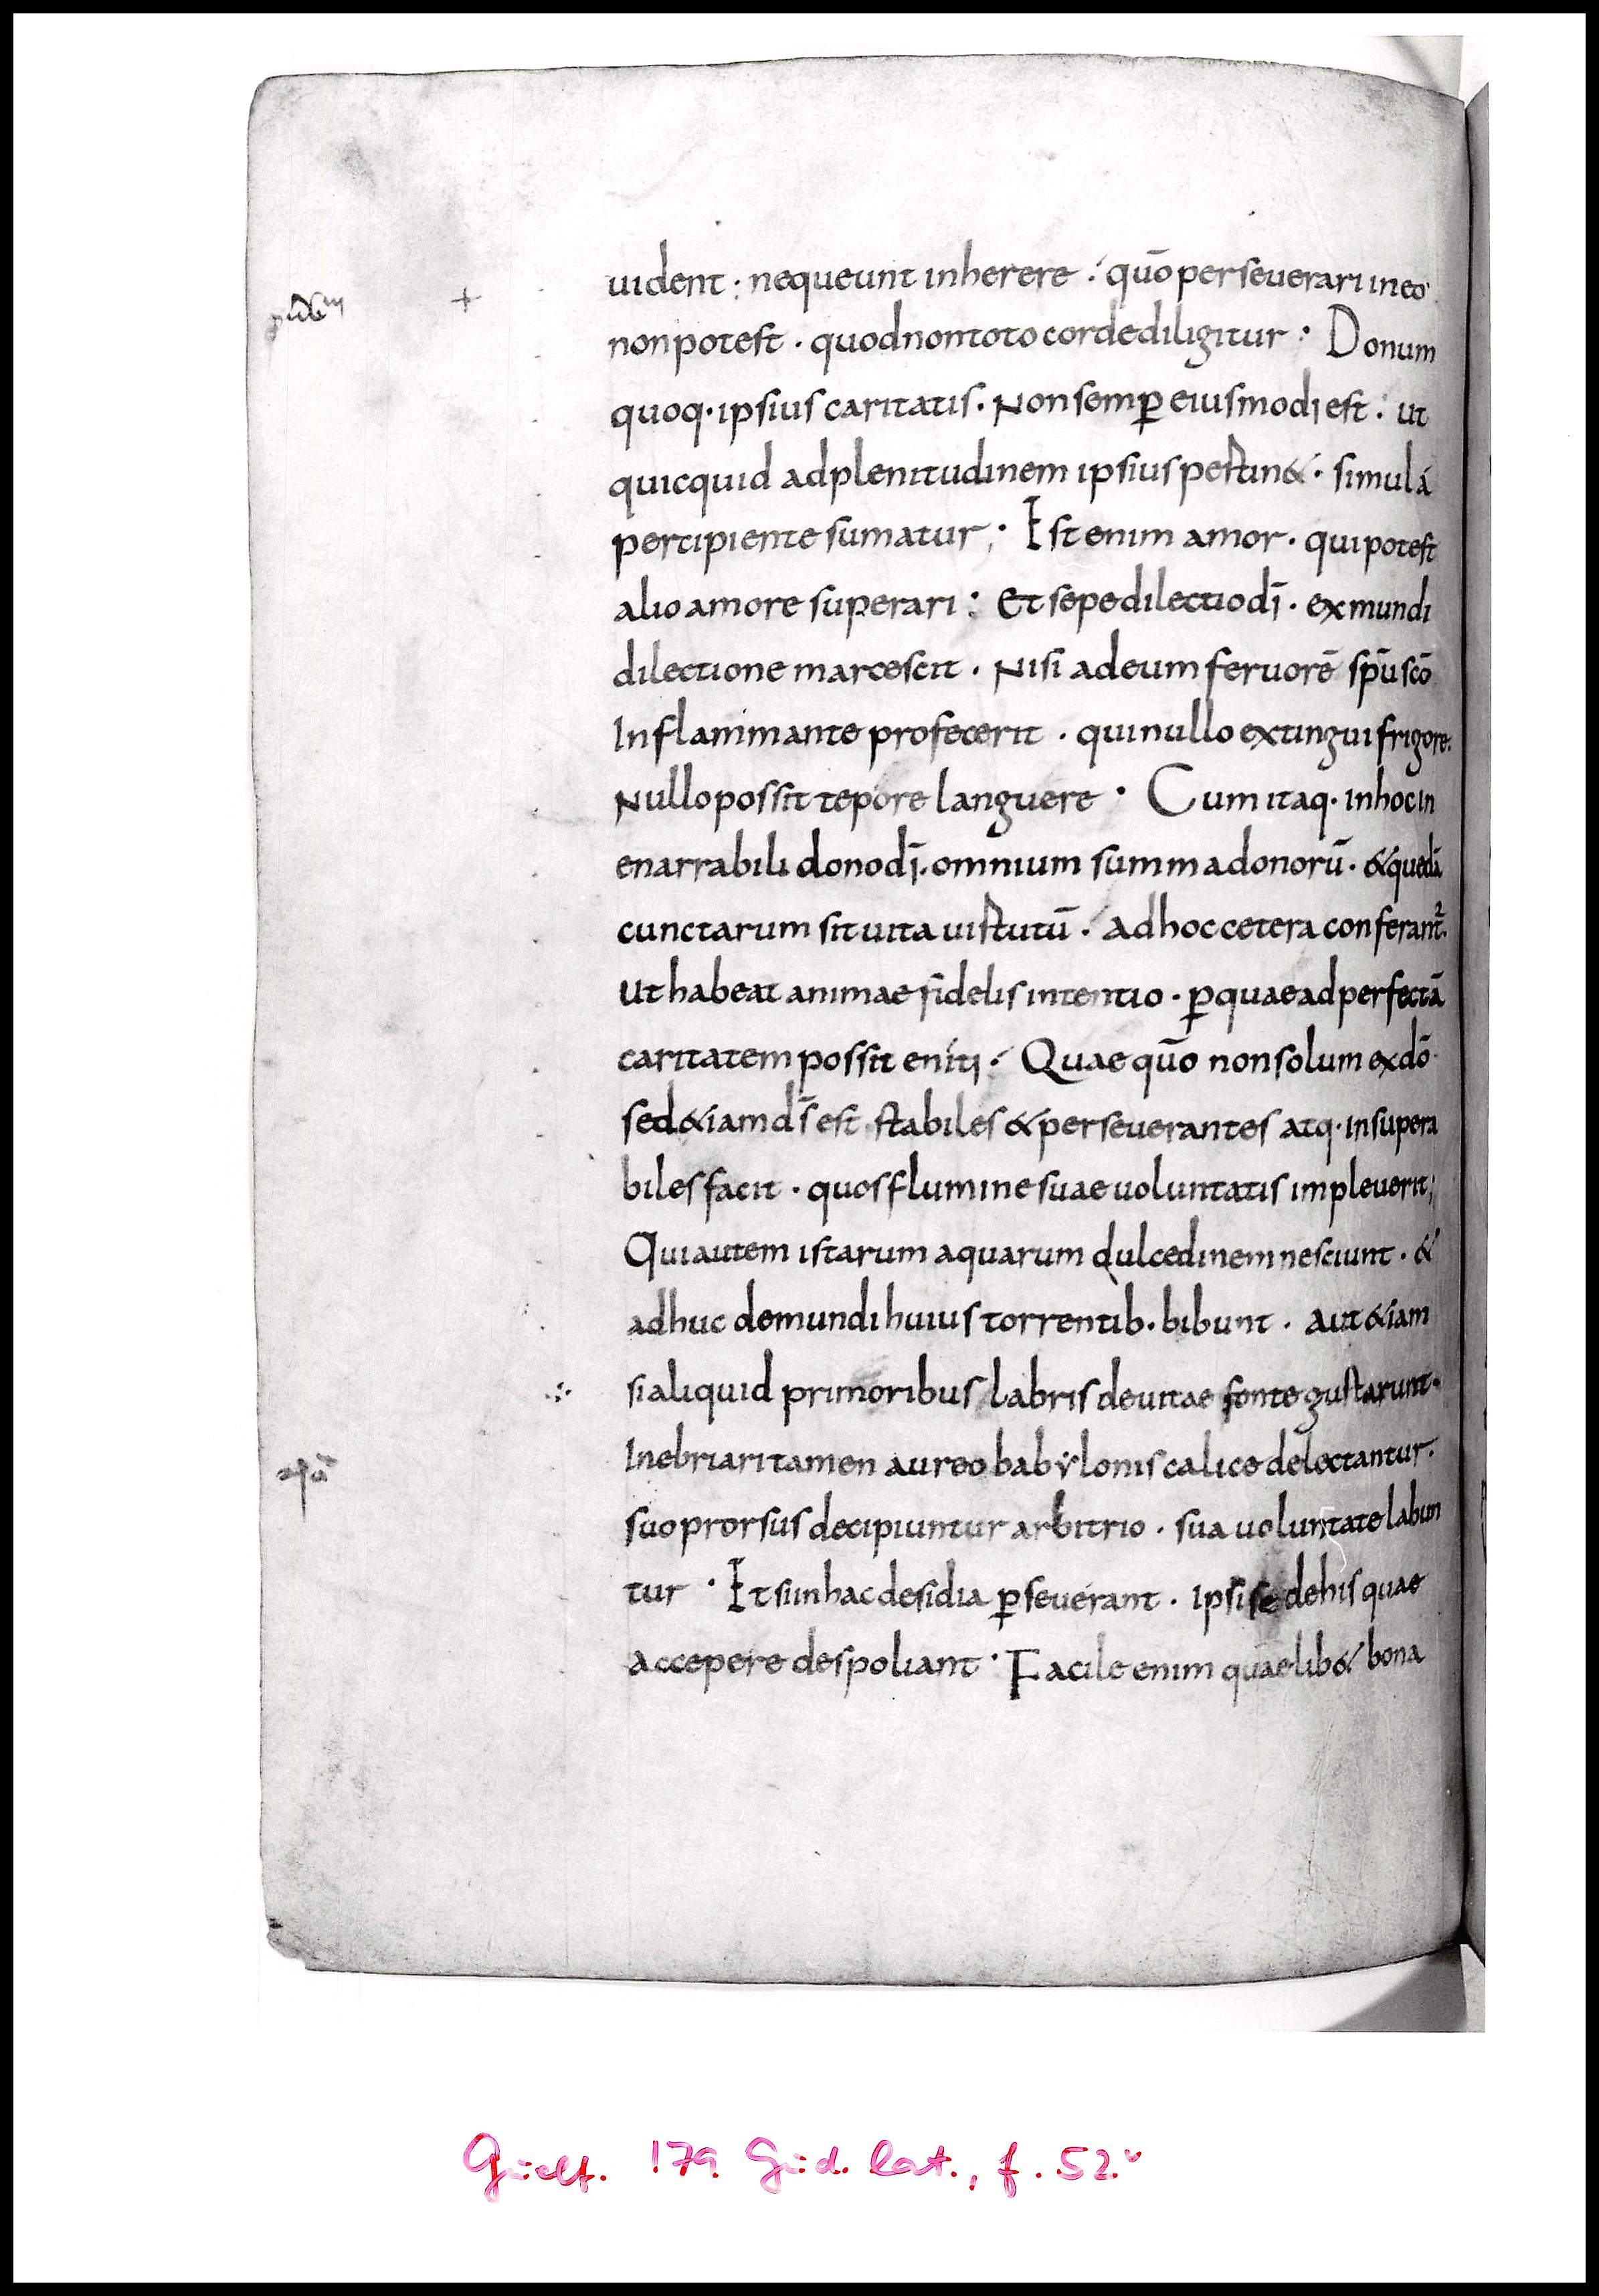 uident : nequeunt inherere . quō perseuerari in eo
non potest . quod non toto corde diligitur : Donum
quoq. ipsius caritatis . Non semp eiusmodi est . ut
quicquid ad plenitudinem ipsius pertin& . simul á
percipiente sumatur ; Est enim amor . qui potest
alio amore superari : Et sepe dilectio dī . ex mundi
dilectione marcescit . Nisi ad eum feruorē spū scō
Inflammante profecerit . qui nullo extingui frigore .
Nullo possit tepore languere . Cum itaq. in hoc in
enarrabili dono dī . omnium summa donorū . & quedā
cunctarum sit uita uirtutū . ad hoc cetera conferant²
Ut habeat animae fidelis intentio . p quae ad perfectā
caritatem possit eniti . Quae quō non solum ex dō
sed &iam d̄s est stabiles & perseuerantes atq. insupera
biles facit . quos flumine suae uoluntatis impleuerit ;
Qui autem istarum aquarum dulcedinem nesciunt . &
adhuc de mundi huius torrentib. bibunt . aut &iam
si aliquid primoribus labris de uitae fonte gustarunt .
Inebriari tamen aureo babylonis calice delectantur .
suo prorsus decipiuntur arbitrio . sua uoluntate labun
tur . Et si in hac desidia pseuerant . ipsi se de his quae
accepere despoliant . Facile enim quaelib& bona
Guelf. 179 Gud. lat., f. 52v